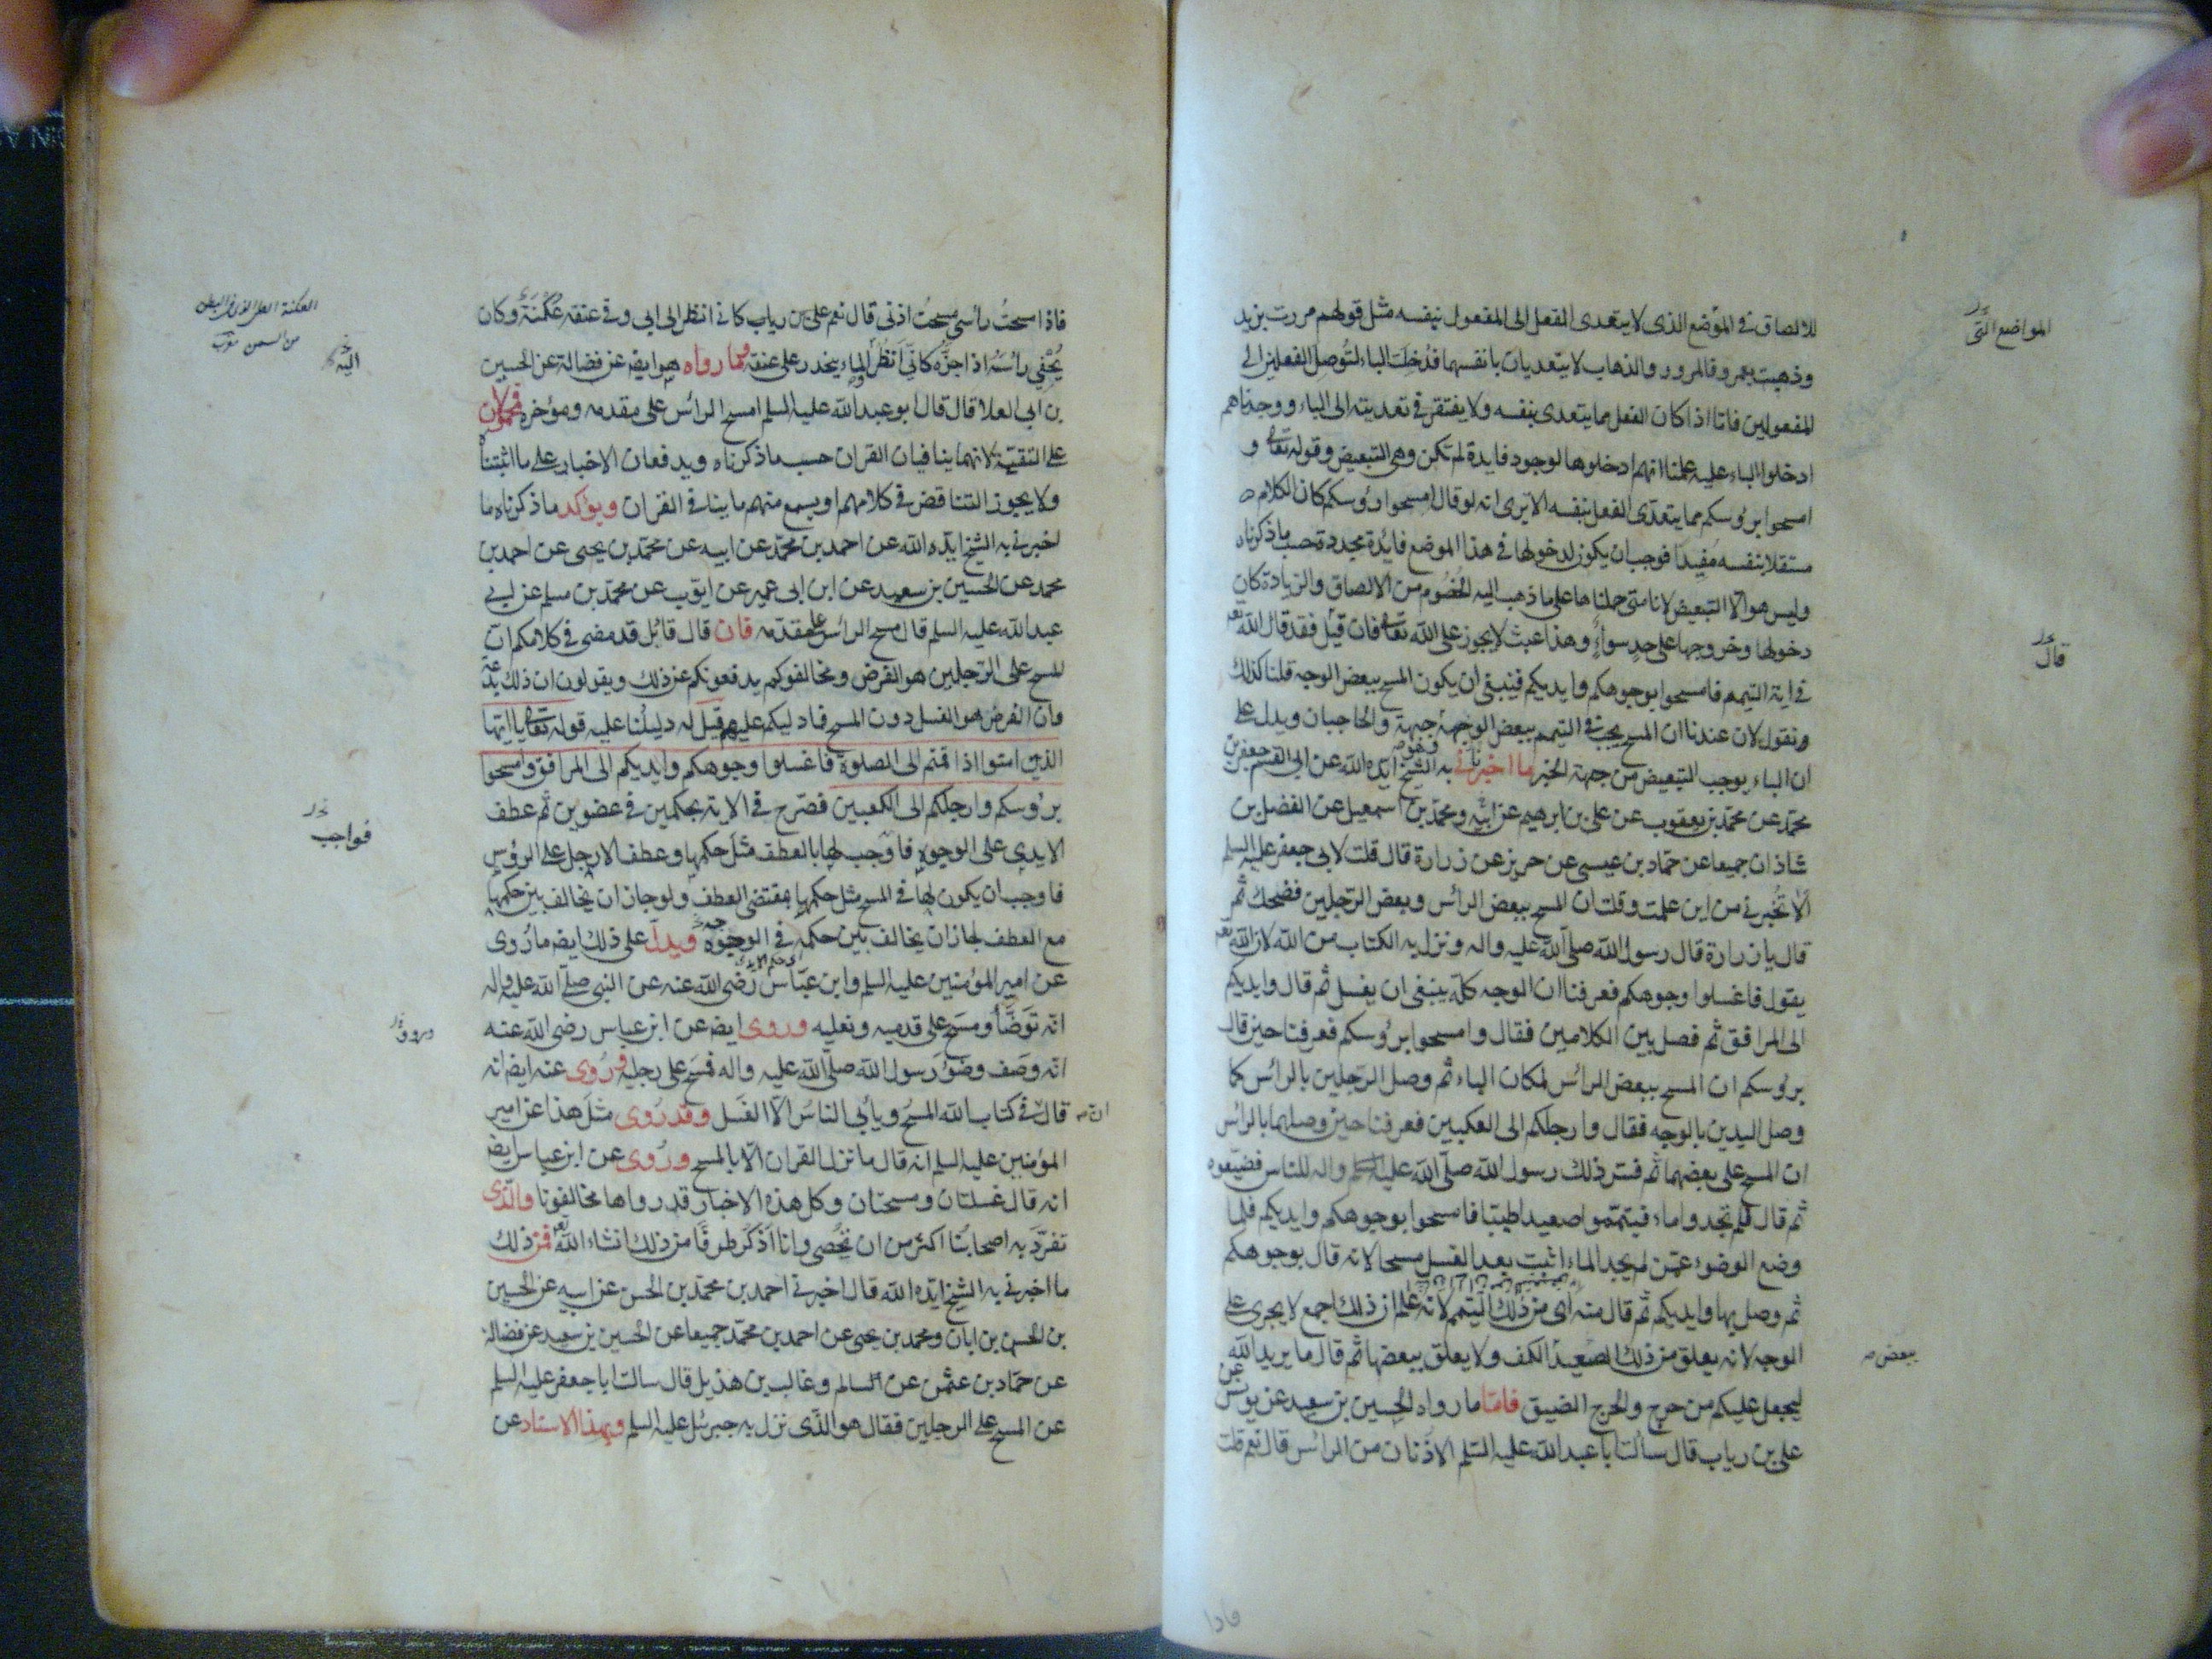 للالصاق فى الموضع الذى لا يتعدى الفعل الى المفعول بنفسه مثل قولهم مررت بزيد
وذهبت بعمرو فالمرور والذهاب لا يتعديان بانفسهما فدخلت الباء لتوصل الفعلين الى
المفعولين فاما اذا كان الفعل مما يتعدى بنفسه ولا يفتقر فى تعديته الى الباء ووجدناهم
ادخلوا الباء عليه علمنا انهم ادخلوها لوجود فايدة لم تكن وهى التبعيض وقوله تعالى و
امسحوا برؤسكم مما يتعدى الفعل بنفسه الا ترى انه لو قال امسحوا رؤسكم كان الكلام
مستقلا بنفسه مفيدا فوجب ان يكون لدخولها فى هذا الموضع فائدة مجددة حسب ما ذكرناه
وليس هو الا التبعيض لانا متى حملناها على ما ذهب اليه الخصوم من الالصاق والزيادة كان
دخولها وخروجها على حد سواء وهذا عبث لا يجوز على الله تعالى فان قيل فقد قال الله تعه
فى اية التيمم فامسحوا بوجوهكم وايديكم فينبغى ان يكون المسح ببعض الوجه قلنا كذلك
ونقول لان عندنا ان المسح يجب فى التيمم ببعض الوجه جبهة والحاجبان ويدل على
ان الباء يوجب التبعيض من جهة الخبر ما اخبرنى به الشيخ ايده الله عن ابى القسم جعفر بن
محمد عن محمد بن يعقوب عن على بن ابرهيم عن ابيه ومحمد بن اسمعيل عن الفضل بن
شاذان جميعا عن حماد بن عيسى عن حريز عن زرارة قال قلت لابى جعفر عليه السلم
الا تخبرنى من اين علمت وقلت ان المسح ببعض الرأس وبعض الرجلين فضحك ثم
قال يا زرارة قال رسول الله صلى الله عليه واله ونزل به الكتاب من الله لان الله تعه
يقول فاغسلوا وجوهكم فعرفنا ان الوجه كله ينبغى ان يغسل ثم قال وايديكم
الى المرافق ثم فصل بين الكلامين فقال وامسحوا برؤسكم فعرفنا حين قال
برؤسكم ان المسح ببعض الرأس لمكان الباء ثم وصل الرجلين بالرأس كما
وصل اليدين بالوجه فقال وارجلكم الى الكعبين فعرفنا حين وصلهما بالرأس
ان المسح على بعضهما ثم فسر ذلك رسول الله صلى الله عليه واله للناس فضيعوه
ثم قال فلم تجدوا ماء فتيمموا صعيدا طيبا فامسحوا بوجوهكم وايديكم فلما
وضع الوضوء عمن لم يجد الماء اثبت بعد الغسل مسحا لانه قال بوجوهكم
ثم وصل بها وايديكم ثم قال منه اى من ذلك التيمم لانه علم ان ذلك اجمع لا يجرى على
الوجه لانه يعلق من ذلك الصعيد الكف ولا يعلق ببعضها ثم قال ما يريد الله
ليجعل عليكم من حرج والحرج الضيق فاما ما رواه الحسين بن سعيد عن يونس عن
على بن رياب قال سألت ابا عبد الله عليه السلم الاذنان من الرأس قال نعم قلت
المواضع التى
قال
ببعض
فاذا
فاذا مسحت رأسى مسحت اذنى قال نعم على بن رياب كانى انظر الى ابى وفى عنقه عكنة وكان
يحفى رأسه اذا جزه كانى انظر الماء ينحدر على عنقه فما رواه هو ايضه عن فضالة عن الحسين
بن ابى العلا قال قال ابو عبد الله عليه السلم امسح الرأس على مقدمه ومؤخره فمحمولان
على التقية لانهما ينافيان القران حسب ما ذكرناه ويدفعان الاخبار على ما اثبتناه
ولا يجوز التناقض فى كلامهم او يسمع منهم ما ينافى القران ويؤكد ما ذكرناه ما
اخبرنى به الشيخ ايده الله عن احمد بن محمد عن ابيه عن محمد بن يحيى عن احمد بن
محمد عن الحسين بن سعيد عن ابن ابى عمير عن ايوب عن محمد بن مسلم عن ابى
عبد الله عليه السلم قال مسح الرأس على مقدمه فان قال قائل قد مضى فى كلامكم ان
المسح على الرجلين هو الفرض ومخالفوكم يدفعونكم عن ذلك ويقولون ان ذلك بدعة
وان الفرض هو الغسل دون المسح فما دليلكم عليهم قيل له دليلنا عليه قوله تعالى يا ايها
الذين امنوا اذا قمتم الى الصلوة فاغسلوا وجوهكم وايديكم الى المرافق وامسحوا
برؤسكم وارجلكم الى الكعبين فصرح فى الاية بحكمين فى عضوين ثم عطف
الايدى على الوجوه فاوجب لها بالعطف مثل حكمها وعطف الارجل على الرؤس
فاوجب ان يكون لها فى المسح مثل حكمها بمقتضى العطف ولو جاز ان يخالف بين حكمها
مع العطف لجاز ان يخالف بين حكمه فى الوجوه ويدل على ذلك ايضه ما روى
عن امير المؤمنين عليه السلم وابن عباس رضى الله عنه عن النبى صلى الله عليه واله
انه توضأ ومسح على قدميه ونعليه وروى ايضه عن ابن عباس رضى الله عنه
انه وصف وضوء رسول الله صلى الله عليه واله فمسح على رجليه وروى عنه ايضا انه
قال فى كتاب الله المسح ويأبى الناس الا الغسل وقد روى مثل هذا عن امير
المؤمنين عليه السلم انه قال ما نزل القران الا بالمسح وروى عن ابن عباس ايضه
انه قال غسلتان ومسحتان وكل هذه الاخبار قد رواها مخالفونا والذى
تفرد به اصحابنا اكثر من ان تحصى وانا اذكر طرفا من ذلك انشاء الله تعه فمن ذلك
ما اخبرنى به الشيخ ايده الله قال اخبرنى احمد بن محمد بن الحسن عن ابيه عن الحسين
بن الحسن بن ابان ومحمد بن يحيى عن احمد بن محمد جميعا عن الحسين بن سعيد عن فضالة
عن حماد بن عثمن عن سالم وغالب بن هذيل قال سالت ابا جعفر عليه السلم
عن المسح على الرجلين فقال هو الذى نزل به جبرئل عليه السلم وبهذا الاسناد عن
العكنة الطى الذى فى البطن
من السمن
اليه
فواجب
ان